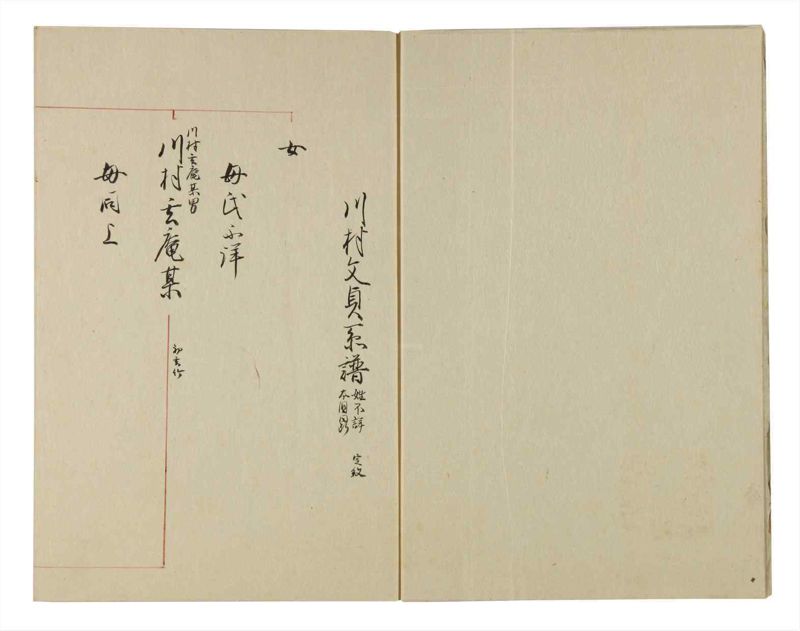 川村文貞系譜
姓不詳
本国
定紋
女
母氏不詳
川村玄庵某男
川村玄庵某
初玄作
母同上